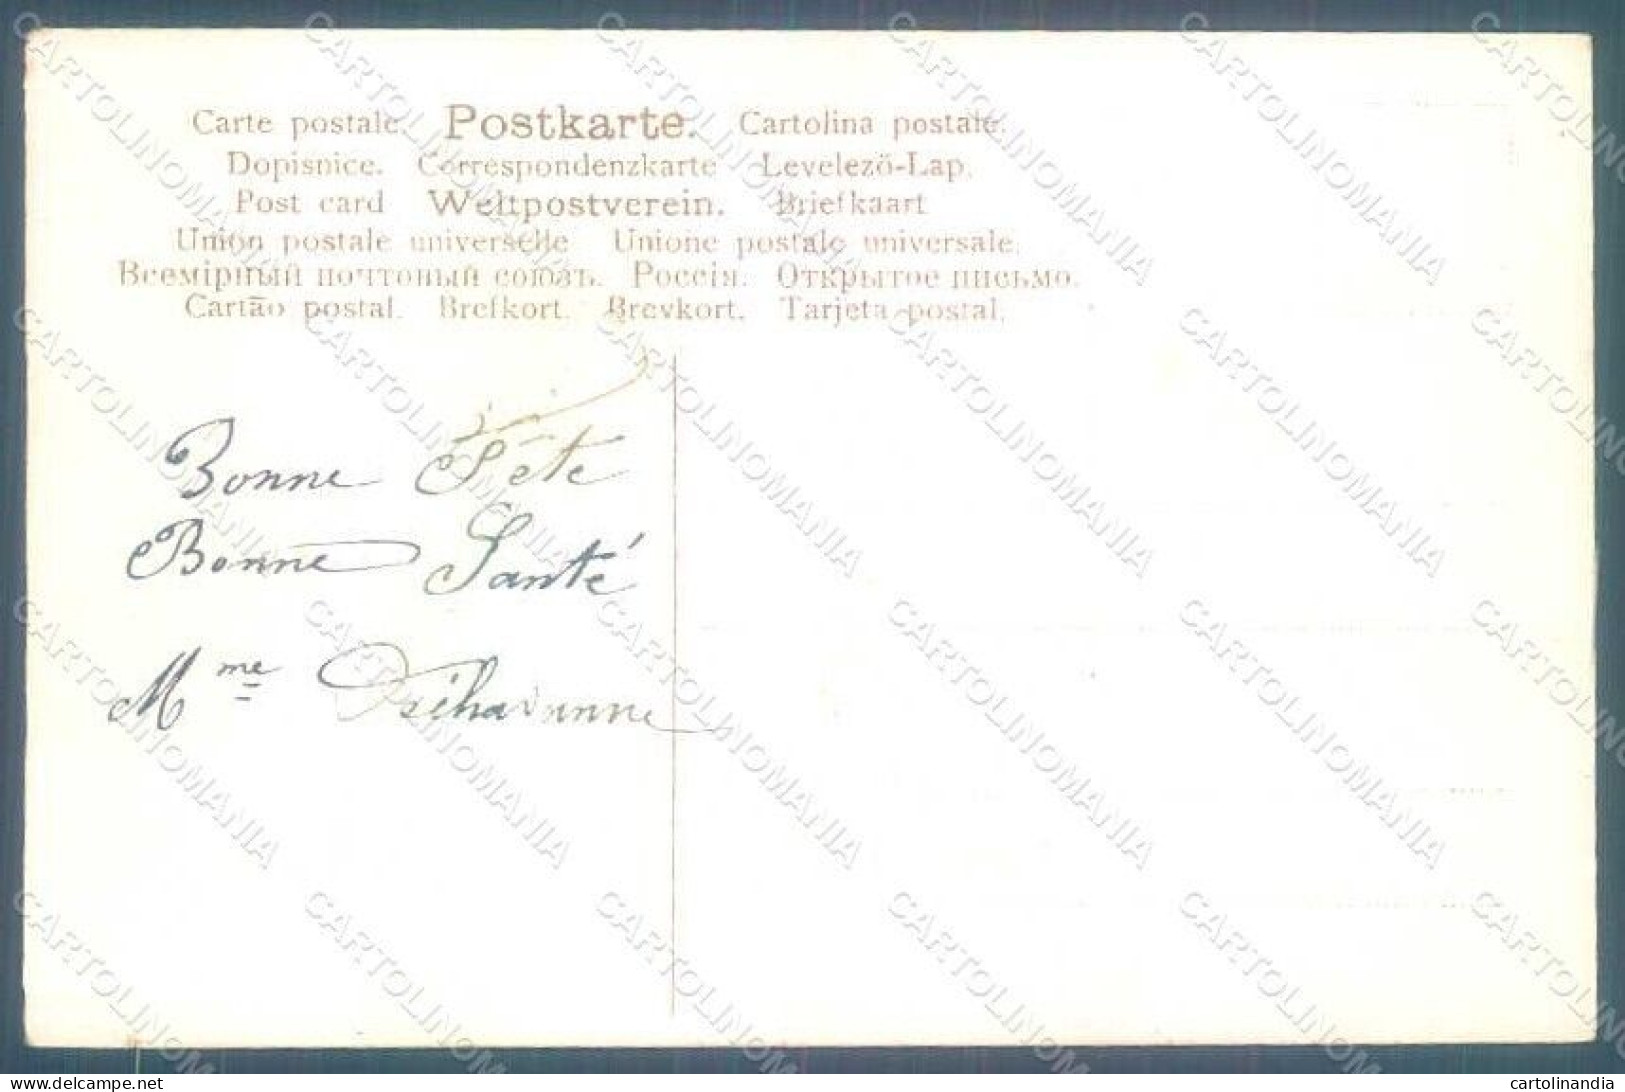 Carte postale. Postkarte. Cartolina postale.
Dopisnice. Correspondenzkarte Levelező-Lap.
Post card Weltpostverein. Briefkaart
Union postale universelle Unione postale universale.
Всемірный почтовый союзъ. Россія. Открытое письмо.
Cartão postal. Brefkort. Brevkort. Tarjeta postal.
Bonne Fête
Bonne Santé
Mme
CARTOLINOMANIA
www.delcampe.net
cartolinandia